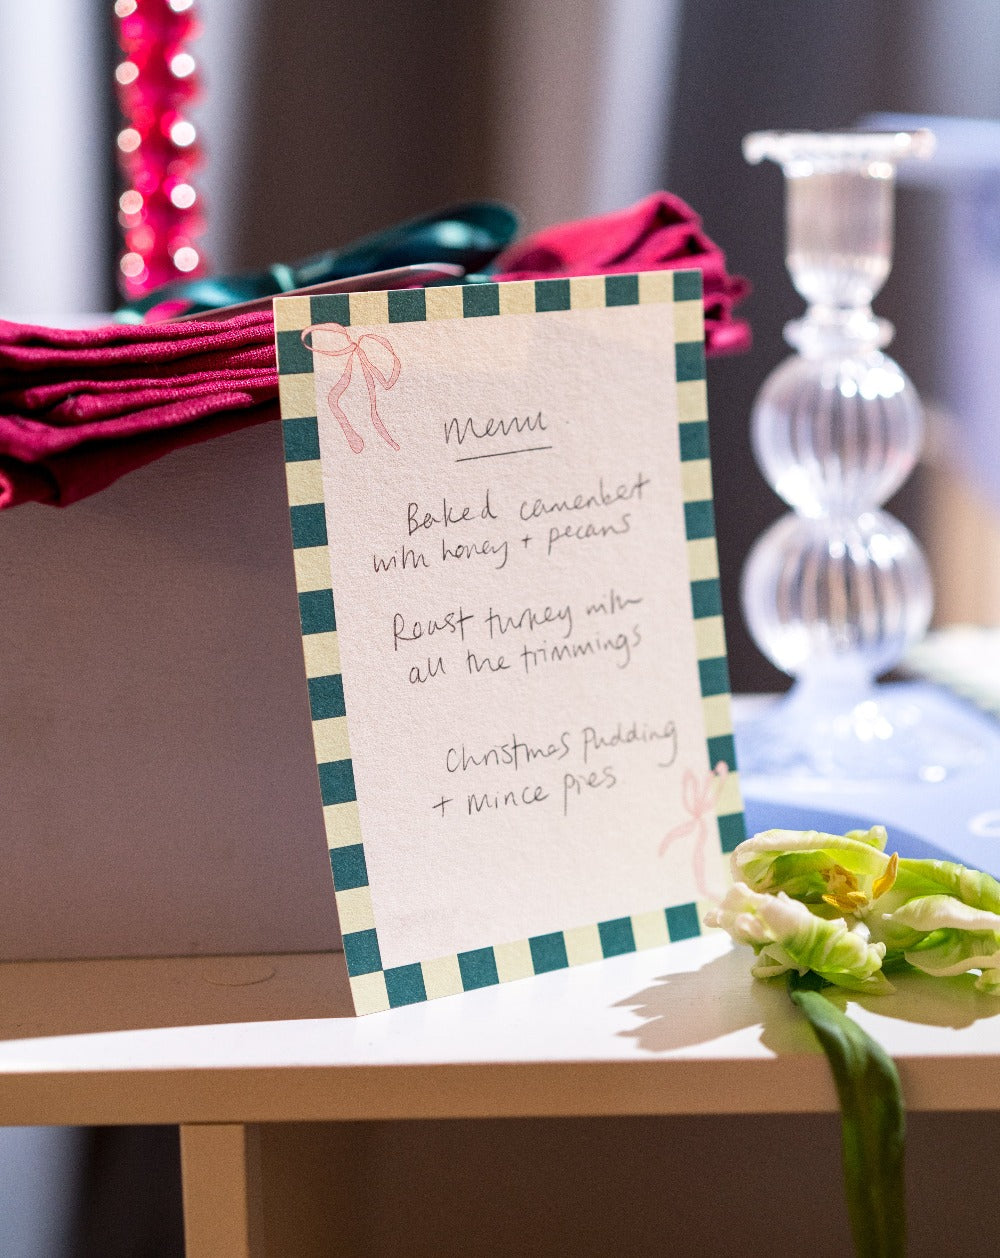 Menu
Baked camenbert
with honey + pecans
Roast turkey with
all the trimmings
Christmas pudding
+ mince pies